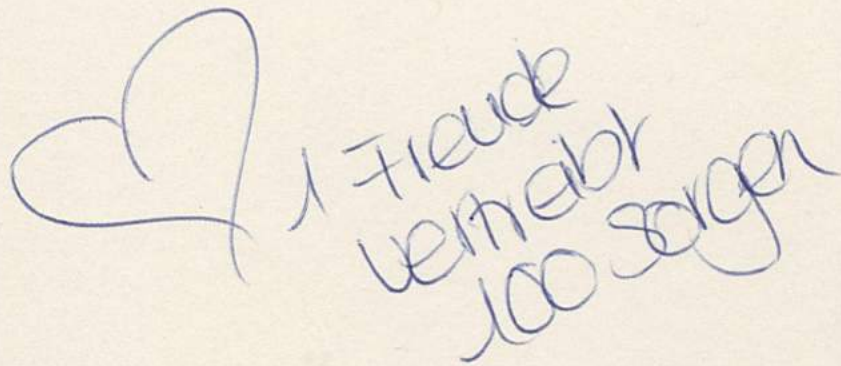 1 Freude
vertreibt
100 Sorgen